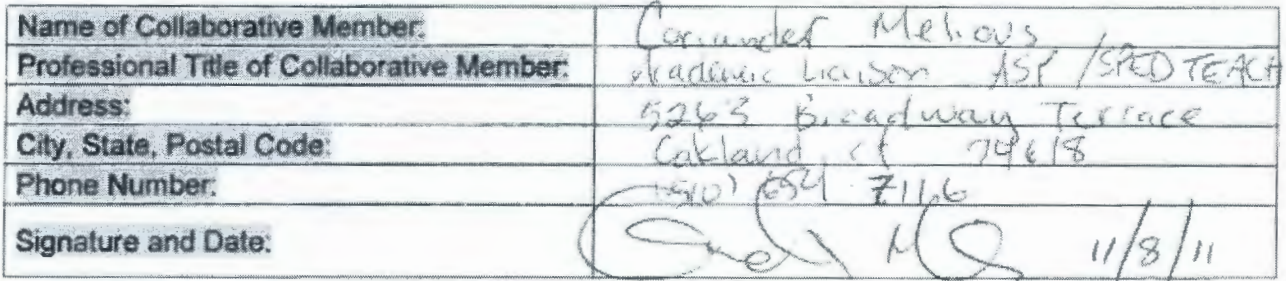 Name of Collaborative Member: Coriander Melious
Professional Title of Collaborative Member: Academic Liaison ASP /SPED TEACH
Address: 5263 Broadway Terrace
City, State, Postal Code: Oakland, 94618
Phone Number: (510) 654 7116
Signature and Date: 11/8/11